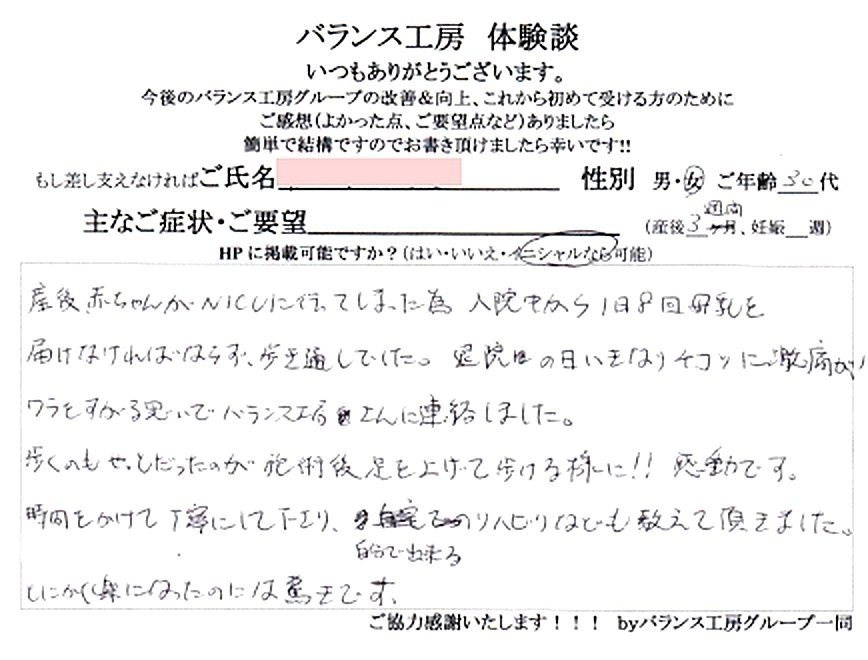 バランス工房 体験談
いつもありがとうございます。
今後のバランス工房グループの改善&向上、これから初めて受ける方のために
ご感想(よかった点、ご要望点など)ありましたら
簡単で結構ですのでお書き頂けましたら幸いです!!
もし差し支えなければご氏名 性別 男・女 ご年齢 30代
主なご症状・ご要望 (産後3ヶ月、妊娠 週)
週間
HPに掲載可能ですか?(はい・いいえ・イニシャルなら可能)
産後赤ちゃんがNICUに行ってしまった為 入院中から1日8回母乳を
届けなければならず、歩き通しでした。退院の日いきなりチコツに激痛が
ワラをすがる思いでバランス工房さんに連絡しました。
歩くのもやっとだったのが施術後足を上げて歩ける様に!! 感動です。
時間をかけて丁寧にして下さり、自宅でのリハビリなども教えて頂きました。
自分で出来る
とにかく楽になったのには驚きです。
ご協力感謝いたします!!! byバランス工房グループ一同